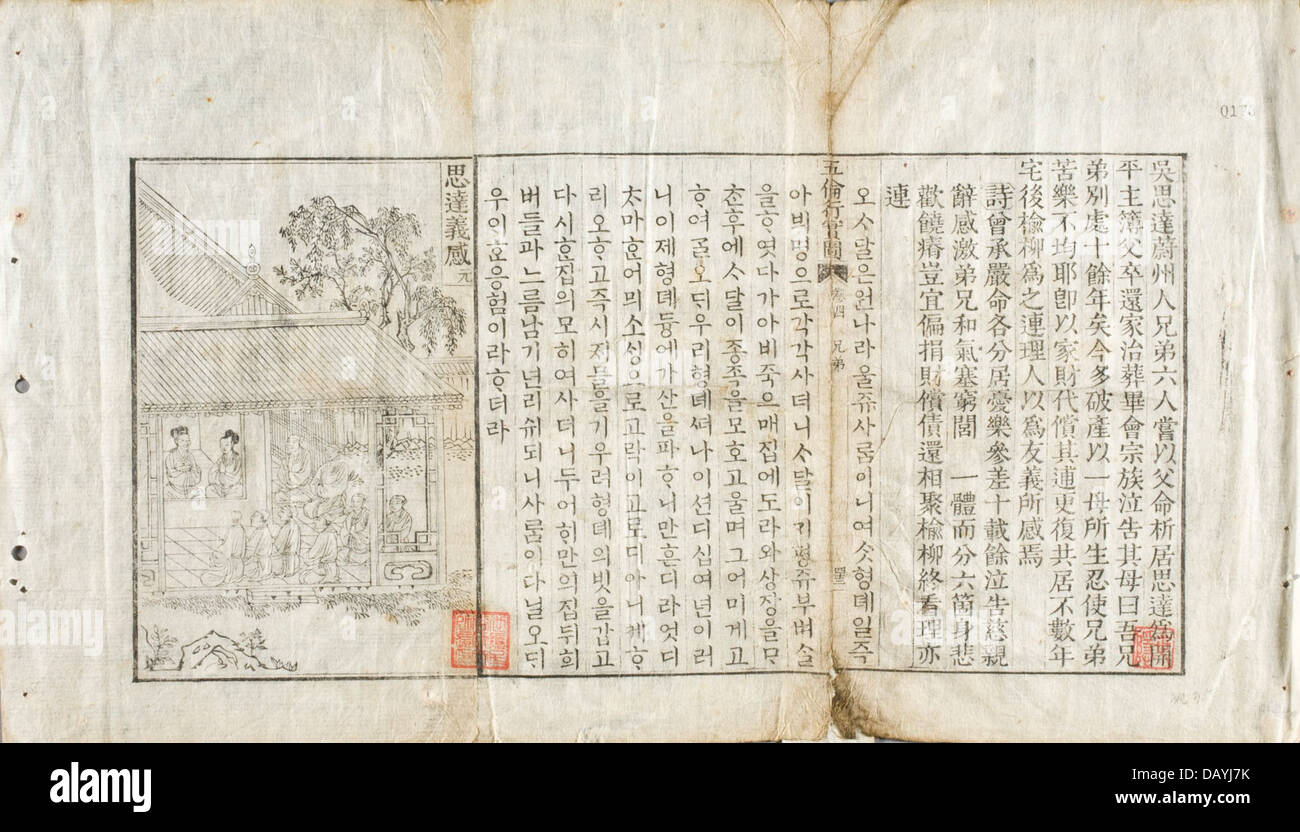 思達義感 元
吳思達蔚州人兄弟六人嘗以父命析居思達爲開
平主簿父卒還家治葬畢會宗族泣告其母曰吾兄
弟別處十餘年矣今多破產以一母所生忍使兄弟
苦樂不均耶卽以家財代償其逋更復共居不數年
宅後楡柳爲之連理人以爲友義所感焉
詩曾承嚴命各分居憂樂參差十載餘泣告慈親
辭感激弟兄和氣塞窮閭 一體而分六箇身悲
歡饒瘠豈宜偏捐財償債還相聚楡柳終看理亦
連
오ᄉᆞ달은원나라울쥬사ᄅᆞᆷ이니여ᄉᆞᆺ형뎨일즉
五倫行實圖 卷四 兄弟
아븨명으로각각사더니ᄉᆞ달이ᄀᆡ평쥬부벼ᄉᆞᆯ
을ᄒᆞ엿다가아비죽으매집에도라와상장을ᄆᆞᆺ
ᄎᆞᆫ후에ᄉᆞ달이종족을모호고울며그어미게고
ᄒᆞ여ᄀᆞᆯ오ᄃᆡ우리형뎨ᄯᅥ나이션디십여년이러
니이제형뎨듕에가산을파ᄒᆞ니만흔디라엇디
ᄎᆞ마ᄒᆞᆫ어믜소ᄉᆡᆼ으로고락이고로디아니케ᄒᆞ
리오ᄒᆞ고즉시ᄌᆡ믈을기우려형뎨의빗을갑고
다시ᄒᆞᆫ집의모히여사더니두어ᄒᆡ만의집뒤희
버들과느릅남기년리슈되니사ᄅᆞᆷ이다닐오ᄃᆡ
우ᄋᆡᄒᆞᆫ응험이라ᄒᆞ더라
alamy
Image ID: DAYJ7K
www.alamy.com